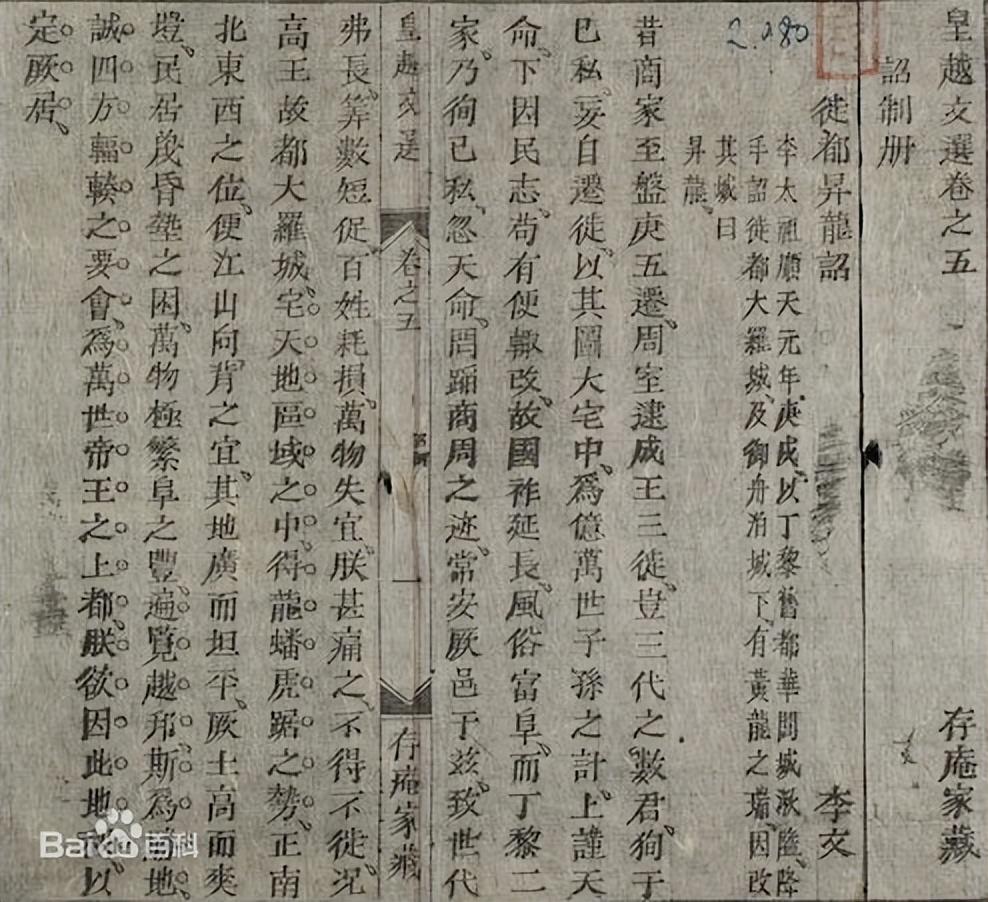 皇越文選卷之五 存庵家藏
詔制册
徙都昇龍詔 李文
李太祖順天元年庚戌以丁黎舊都華閭城湫隘降
手詔徙都大羅城及御舟泊城下有黃龍之瑞因改
其城曰
昇龍
昔商家至盤庚五遷周室逮成王三徙豈三代之數君狥于
己私妄自遷徙以其圖大宅中爲億萬世子孫之計上謹天
命下因民志苟有便輙改故國祚延長風俗富阜而丁黎二
家乃徇己私忽天命罔蹈商周之迹常安厥邑于茲致世代
皇越文選 卷之五 一 存庵家藏
弗長筭數短促百姓耗損萬物失宜朕甚痛之不得不徙况
高王故都大羅城宅天地區域之中得龍蟠虎踞之勢正南
北東西之位便江山向背之宜其地廣而坦平厥土高而爽
塏民居蔑昏墊之困萬物極繁阜之豐遍覽越邦斯爲勝地
誠四方輻輳之要會爲萬世帝王之上都朕欲因此地利以
定厥居
Baidu百科